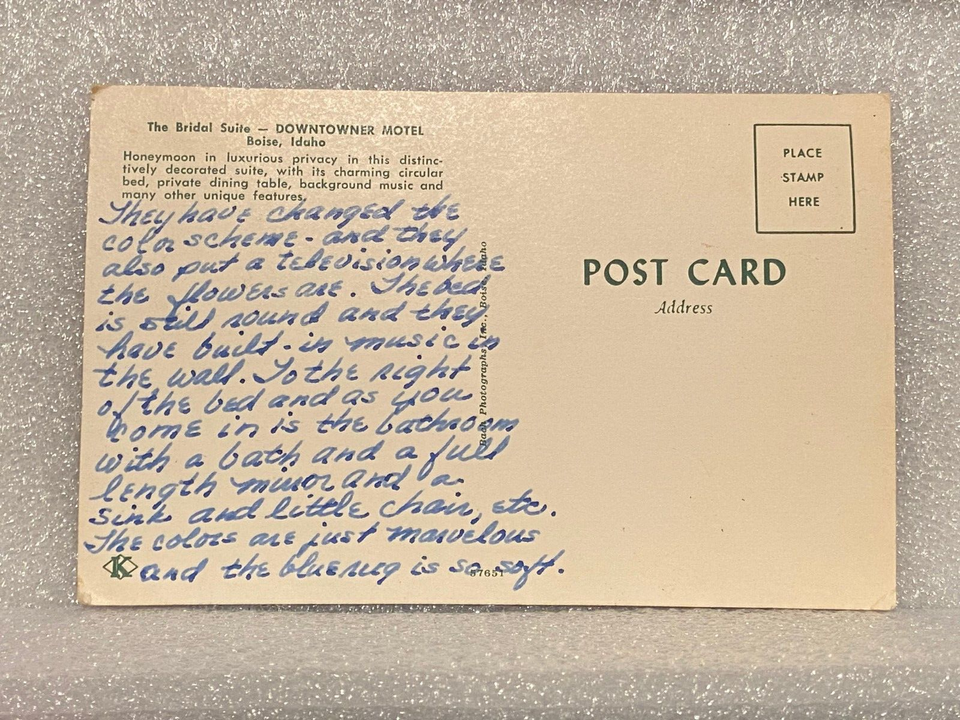 The Bridal Suite — DOWNTOWNER MOTEL
Boise, Idaho
Honeymoon in luxurious privacy in this distinc-
tively decorated suite, with its charming circular
bed, private dining table, background music and
many other unique features.
They have changed the
color scheme - and they
also put a television where
the flowers are. The bed
is still round and they
have built-in music in
the wall. To the right
of the bed and as you
come in is the bathroom
with a bath and a full
length mirror and a
sink and little chair, etc.
The colors are just marvelous
and the blue rug is so soft.
K
57651
Photographs, Inc., Boise, Idaho
PLACE
STAMP
HERE
POST CARD
Address